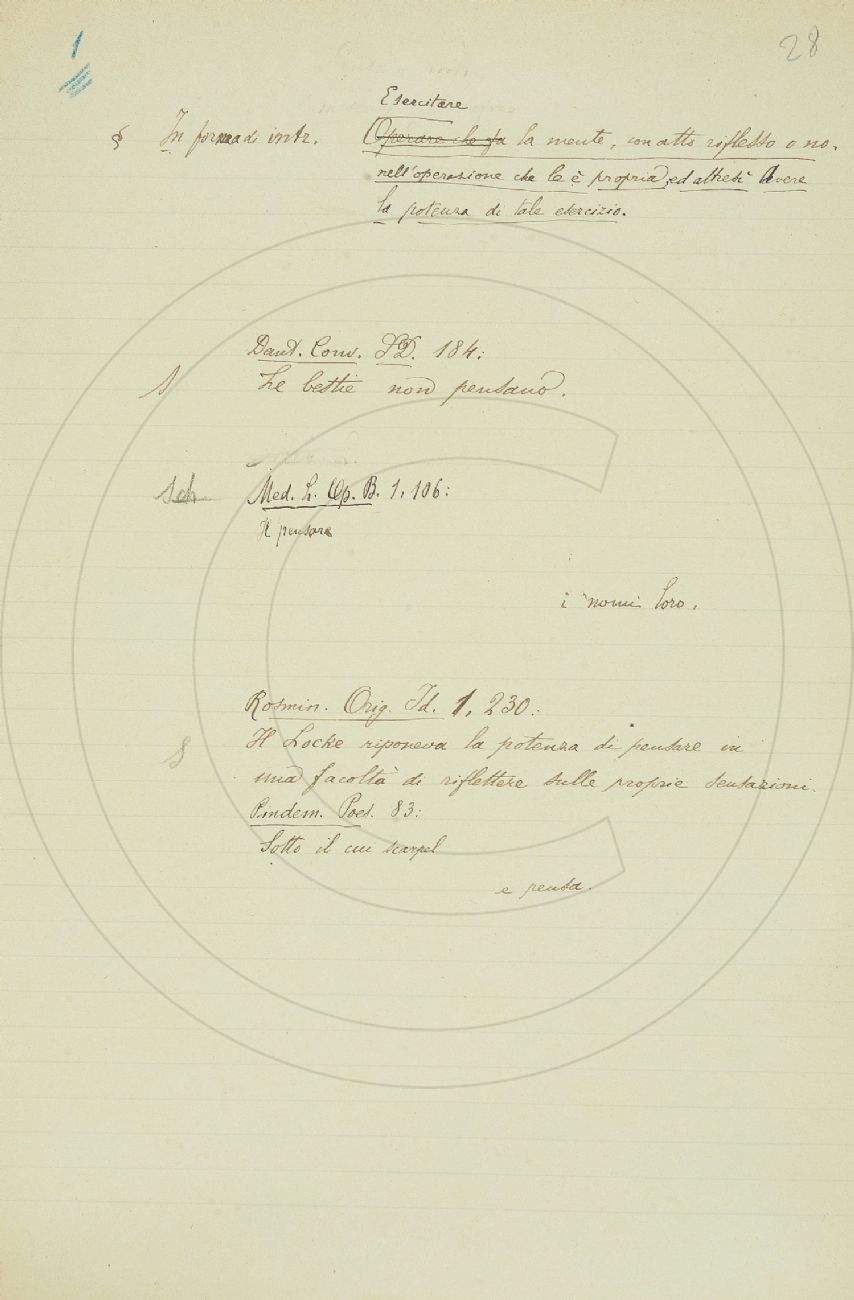 1
28
Esercitare
§ In forma di intr. Operare che fa la mente, con atto riflesso o no,
nell'operazione che le è propria, ed altresì Avere
la potenza di tale esercizio.
Dant. Conv. 184:
S Le bestie non pensano.
Sch Med. L. Op. B. 1, 106:
Il pensare
i nomi loro.
Rosmin. Orig. Id. 1, 230:
S Il Locke riponeva la potenza di pensare in
una facoltà di riflettere sulle proprie sensazioni.
Pindem. Poes. 83:
Sotto il cui scarpel
e pensa.